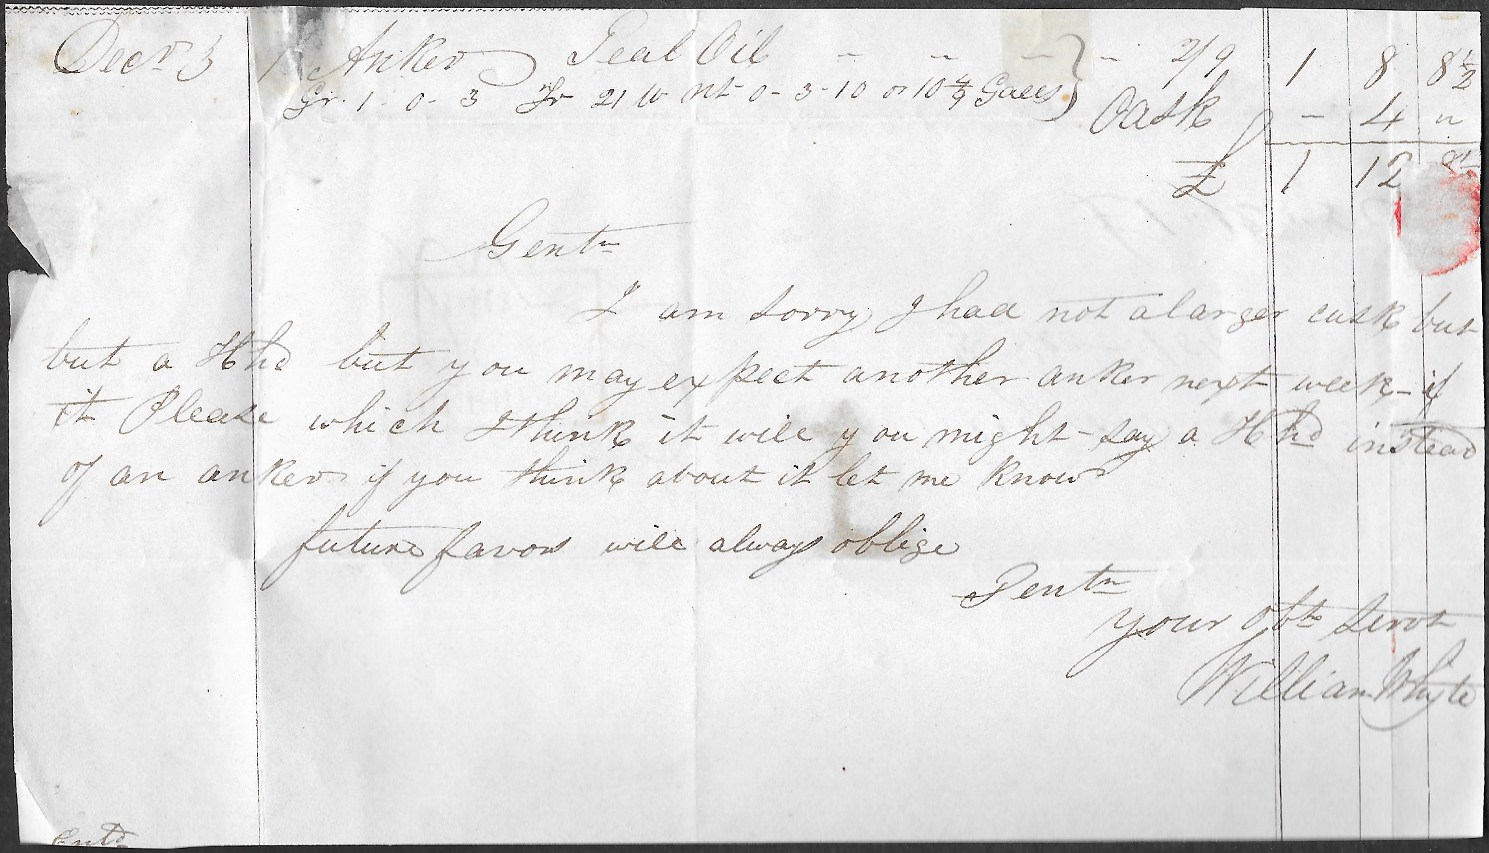 Decr 3 1 Anker Seal Oil - - - } - 2/9 1 8 8 1/2
Gr. 1 - 0 - 3 Tr 21 lb Nt 0 - 3 - 10 or 10 4/9 Galls } Cask - 4 "
£ 1 12 8 1/2
Gentn
I am sorry I had not a larger cask but
but a Hhd but you may expect another anker next week - if
it Please which I think it will you might say a Hhd instead
of an anker if you think about it let me know
future favors will always oblige
Gentn
Your Obt Servt
William Whyte
Entd